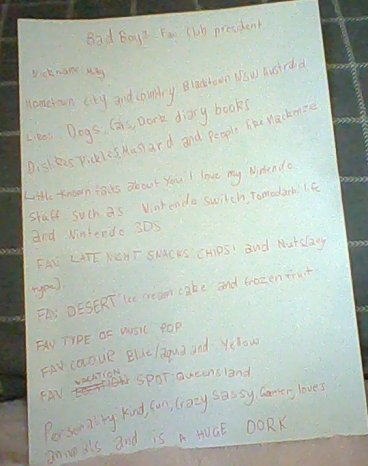 Bad Boyz Fav Club president
Nickname: Miley
Hometown City and country: Blacktown NSW Australia
Likes: Dogs, Cats, Dork diary books
Dislikes Pickles, Mustard and people like Mackenzie
Little-known facts about You: I love my Nintendo
stuff such as Nintendo Switch, Tomodachi life
and Nintendo 3DS
FAV LATE NIGHT SNACKS CHIPS! and Nuts (any
type)
FAV DESERT Ice cream cake and frozen fruit
FAV TYPE OF MUSIC POP
FAV COLOUR Blue/aqua and Yellow
FAV VACATION SPOT: Queensland
Personality: Kind, fun, crazy sassy Gamer, loves
animals and is A HUGE DORK